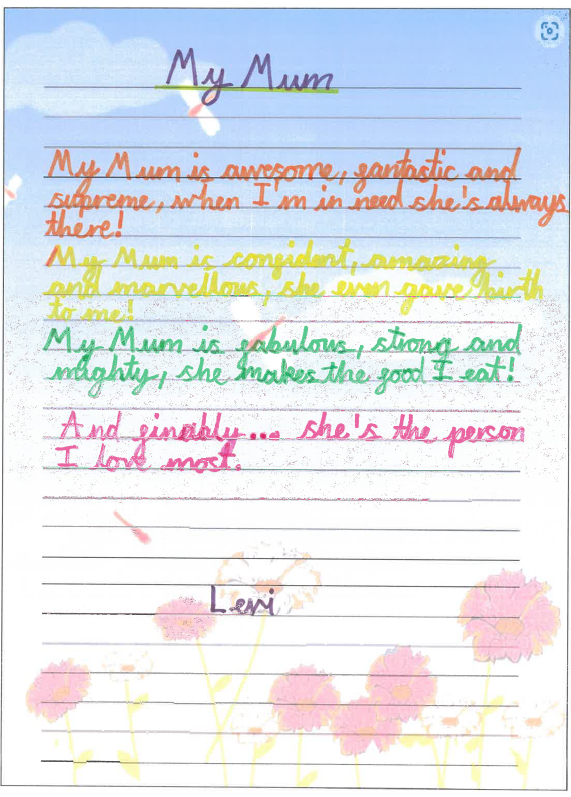 My Mum
My Mum is awesome, fantastic and
supreme, when I'm in need she's always
there!
My Mum is confident, amazing
and marvellous, she even gave birth
to me!
My Mum is fabulous, strong and
mighty, she makes the food I eat!
And finally... she's the person
I love most.
Levi